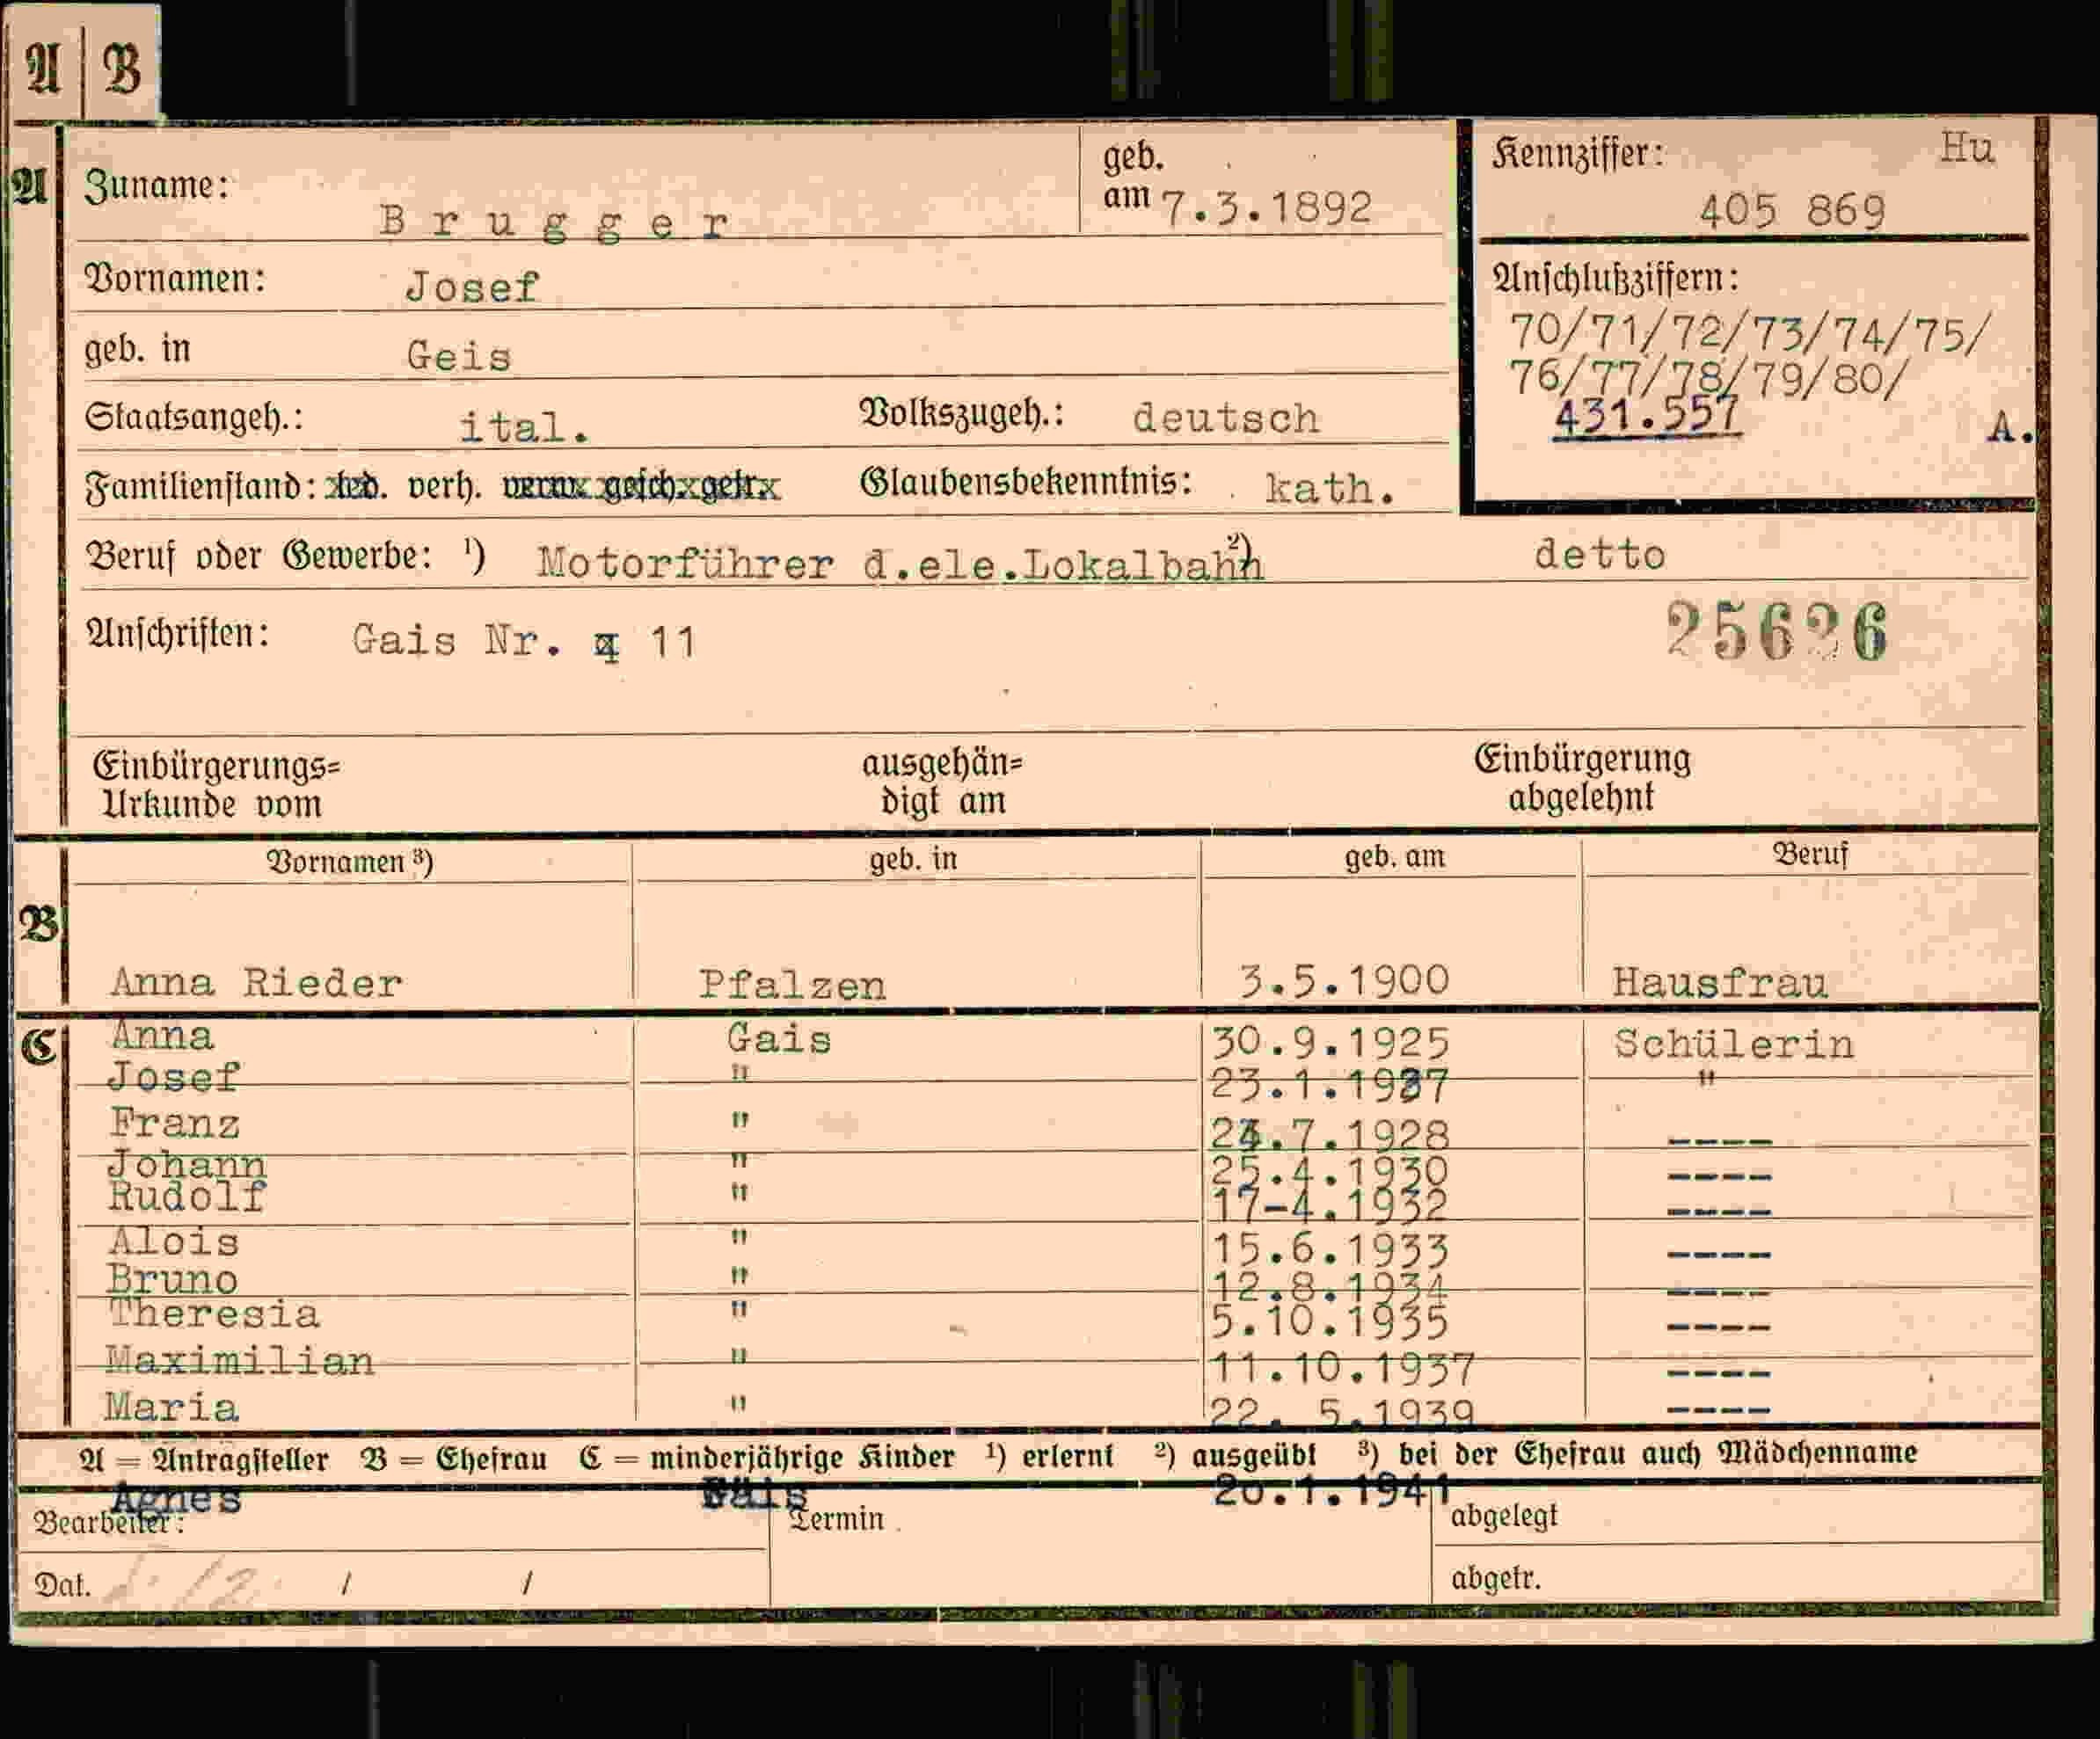 A | B
A Zuname: Brugger geb. am 7.3.1892
Kennziffer: Hu
405 869
Vornamen: Josef
Anschlußziffern:
70/71/72/73/74/75/
76/77/78/79/80/
431.557 A.
geb. in Geis
Staatsangeh.: ital. Volkszugeh.: deutsch
Familienstand: led. verh. verw. gesch. getr. Glaubensbekenntnis: kath.
Beruf oder Gewerbe: ¹) Motorführer d.ele.Lokalbahn ²) detto
Anschriften: Gais Nr. 11
256 6
Einbürgerungs=
Urkunde vom
ausgehän=
digt am
Einbürgerung
abgelehnt
Vornamen ³) geb. in geb. am Beruf
B
Anna Rieder Pfalzen 3.5.1900 Hausfrau
C Anna Gais 30.9.1925 Schülerin
Josef " 23.1.1927 "
Franz " .7.1928 ----
Johann " 25.4.1930 ----
Rudolf " 17-4.1932 ----
Alois " 15.6.1933 ----
Bruno " 12.8.1934 ----
Theresia " 5.10.1935 ----
Maximilian " 11.10.1937 ----
Maria " 22. 5.1939 ----
A = Antragsteller B = Ehefrau C = minderjährige Kinder ¹) erlernt ²) ausgeübt ³) bei der Ehefrau auch Mädchenname
Agnes Gais 20.1.1941
Bearbeiter: Termin abgelegt
Dat. / / abgetr.